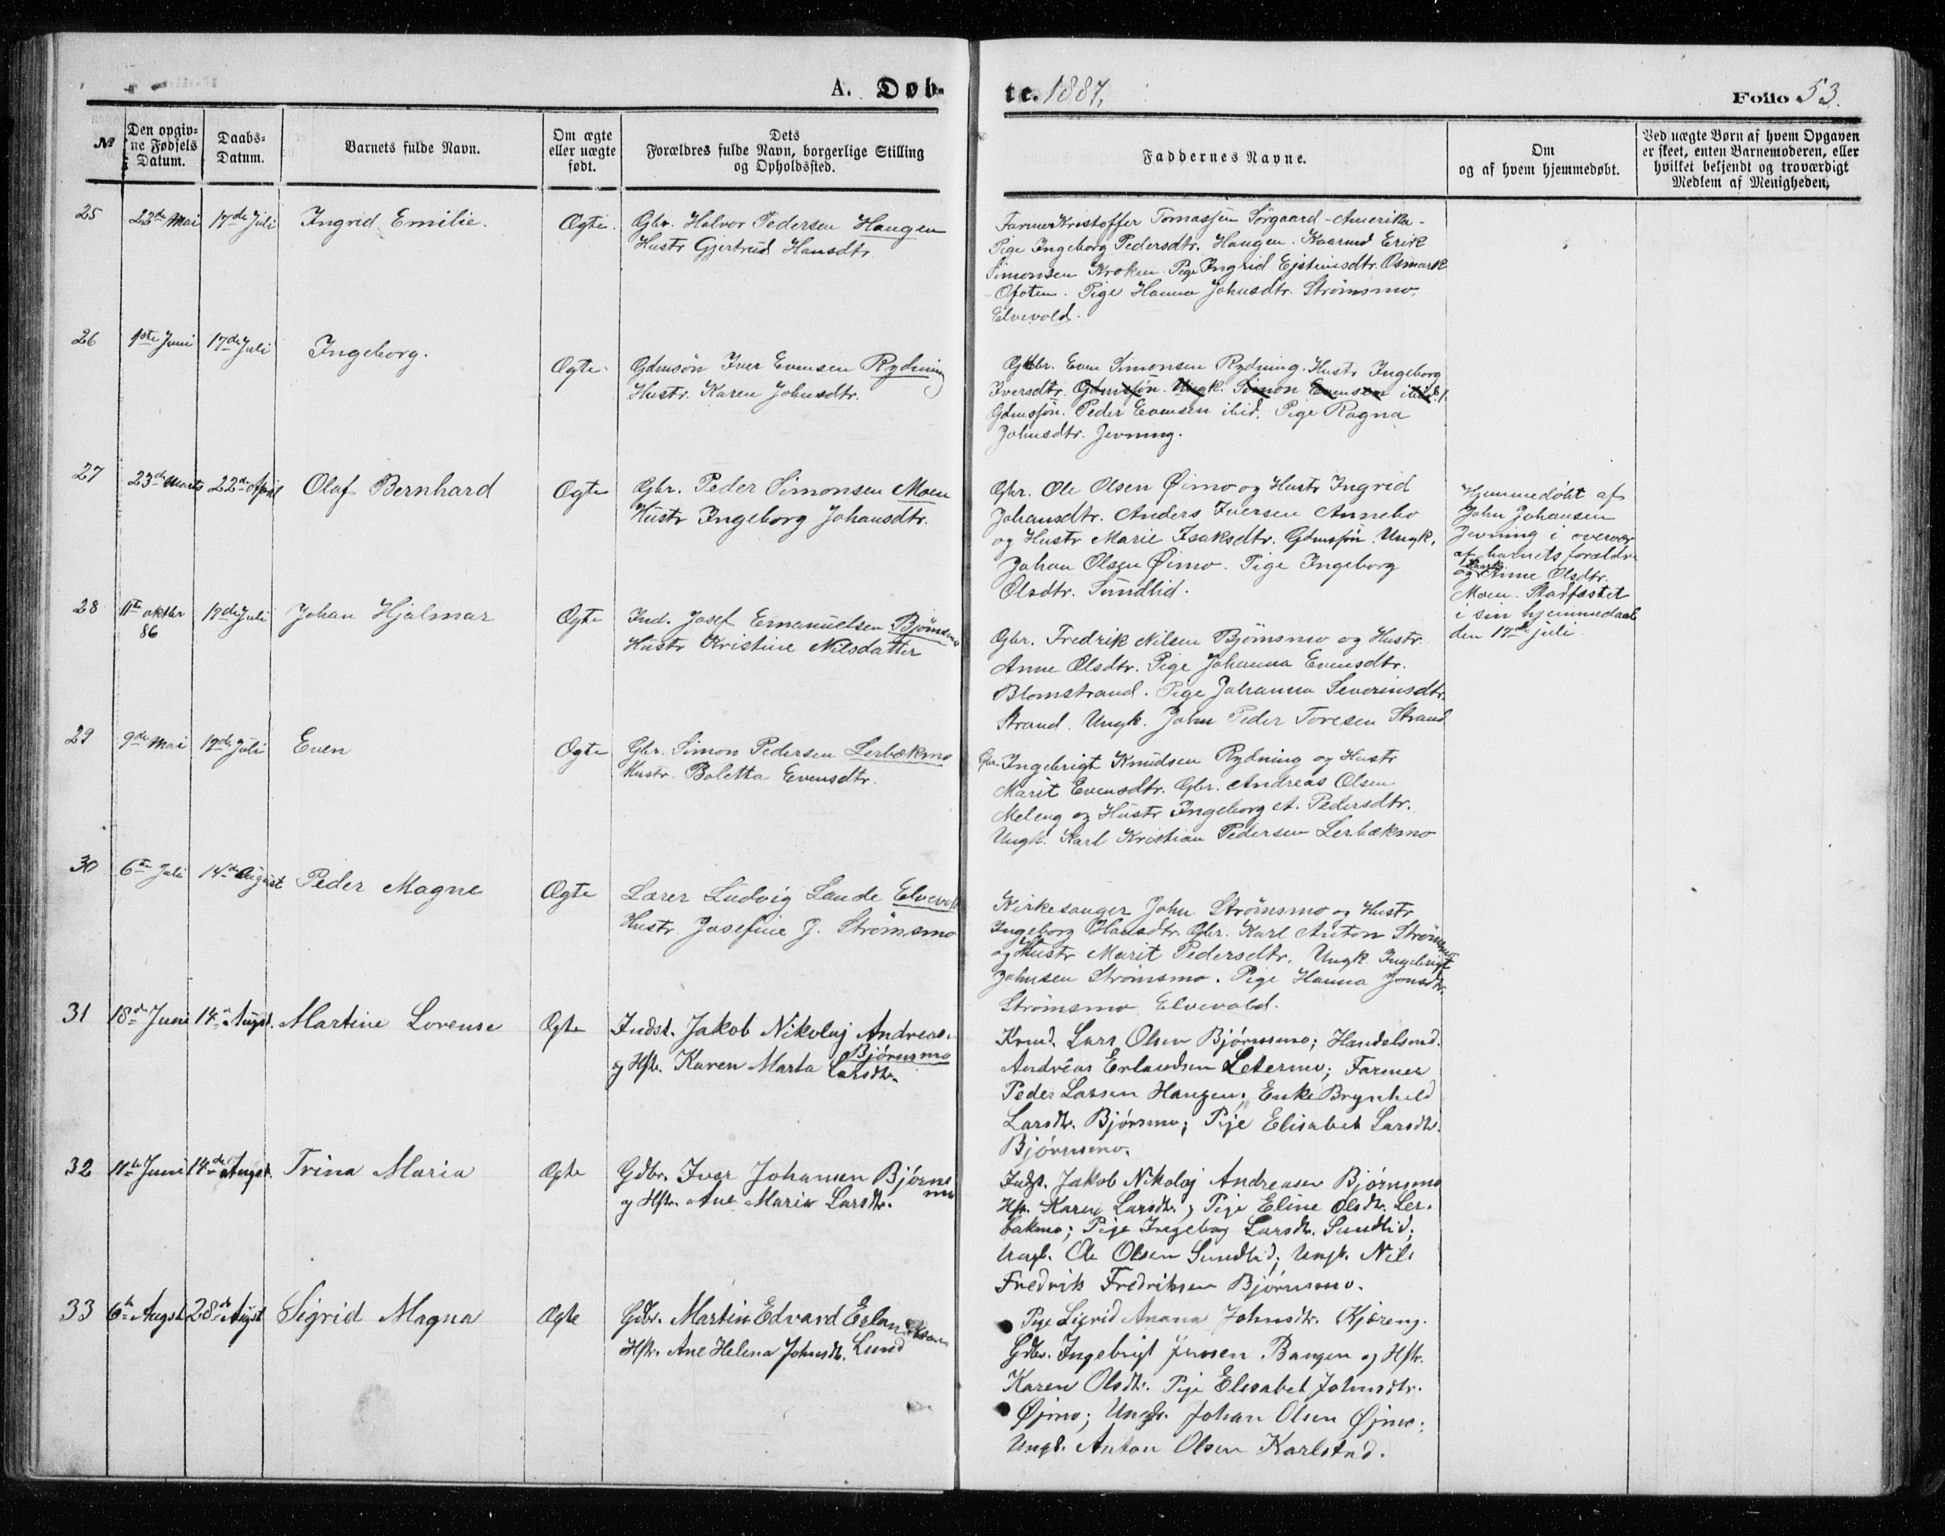 A. Døbte. 1887. Folio 53.
№
Den opgiv-
ne Fødsels
Datum.
Daabs-
Datum.
Barnets fulde Navn.
Om ægte
eller uægte
født.
Dets
Forældres fulde Navn, borgerlige Stilling
og Opholdssted.
Faddernes Navne.
Om
og af hvem hjemmedøbt.
Ved uægte Børn af hvem Opgaven
er skeet, enten Barnemoderen, eller
hvilket bekjendt og troværdigt
Medlem af Menigheden.
25 22de Mai 17de Juli Ingrid Emilie. Ægte. Gbr. Halvor Pedersen Haugen
Hustr Gjertrud Hansdtr
Farmer Kristoffer Tomassen Sörgaard - Amerika -
Pige Ingeborg Pedersdtr. Haugen. Kaarmd Erik
Simonsen Kroken. Pige Ingrid Ejstinsdtr. Osmark
- Ofoten. Pige Hanna Johnsdtr. Strømsmo,
Elvevold.
26 1ste Juni 17de Juli Ingeborg. Ægte. Gdmsön Iver Evensen Rydning
Hustr. Karen Johnsdtr.
Gbr. Even Simonsen Rydning. Hustr Ingeborg
Iversdtr. Gdmssön. Ungk. Simon Evensen ibid.
Gdmssön. Peder Evensen ibid. Pige Ragna
Johnsdtr. Jevning.
27 23de Marts 22de April Olaf Bernhard Ægte Gbr. Peder Simonsen Moen
Hustr Ingeborg Johansdtr.
Gbr. Ole Olsen Øimo og Hustr Ingrid
Johansdtr. Anders Iversen Annebo
og Hustr Marie Isaksdtr. Gdmssön. Ungk.
Johan Olsen Øimo. Pige Ingeborg
Olsdtr. Sundlid.
Hjemmedöbt af
John Johansen
Jevning i overvær
af barnets forældre
og Anne Olsdtr.
Moen. Stadfæstet
i sin hjemmedaab
den 17de juli.
28 11te oktbr
86 17de Juli Johan Hjalmar Ægte Ind. Josef Emanuelsen Bjömsmo
Hustr Kristine Nilsdatter
Gbr. Fredrik Nilsen Bjömsmo og Hustr
Anne Olsdtr. Pige Johanna Evensdtr.
Blomstrand. Pige Johanna Severinsdtr.
Strand. Ungk. John Peder Toresen Strand
29 9de Mai 17de Juli Even Ægte Gbr. Simon Pedersen Lerbækmo
Hustr. Boletta Evensdtr.
Gbr. Ingebrigt Knudsen Rydning og Hustr
Marit Evensdtr. Gbr. Andreas Olsen
Moleng og Hustr Ingeborg A. Pedersdtr.
Ungk. Karl Kristian Pedersen Lerbækmo
30 6te Juli 14de August Peder Magne Ægte Lærer Ludvig Lande Elvevold
Hustr. Josefine J. Strømsmo
Kirkesanger John Strømsmo og Hustr
Ingeborg Hansdtr. Gbr. Karl Anton Strømsmo
og Hustr Marit Pedersdtr. Ungk Ingebrigt
Johnsen Strømsmo. Pige Hanna Jonsdtr.
Strømsmo Elvevold.
31 18de Juni 14de Augst. Martine Lorense Ægte Indst. Jakob Nikolaj Andreas.
Bjørnsmo
og Hstr. Karen Marta Larsdtr.
Krmd. Lars Olsen Bjørnsmo; Handelsmd.
Andréas Erlandsen Setermo; Farmer
Peder Larsen Haugen; Enke Brynhild
Larsdtr. Bjørsmo; Pije Elisabet Larsdtr.
Bjørnsmo.
32 11te Juni 14de Augst. Trina Maria Ægte Gdbr. Iver Johansen Bjørns
mo
og Hstr. Ane Maria Larsdtr.
Indst. Jakob Nikolaj Andreasen Bjørnsmo
Hstr. Karen Larsdtr.; Pije Eline Olsdtr. Ler-
bakmo; Pije Ingeborg Larsdtr. Sundlid;
Ungk. Ole Olsen Sundlid; Ungk. Nils
Fredrik Fredriksen Bjørnsmo.
33 6te Augst. 28de Augst Sigrid Magna Ægte Gdbr. Martin Edvard Erlandsen
Hstr. Ane Helena Johnsdtr. Lund
Pige Sigrid Anana Johnsdtr. Kjæreng.
Gdbr. Ingebrigt Jensen Bangen og Hstr.
Karen Olsdtr. Pije Elisabet Johnsdtr.
Øjmo; Ungk. Johan Olsen Øjmo;
Ungk. Anton Olsen Karlstad.